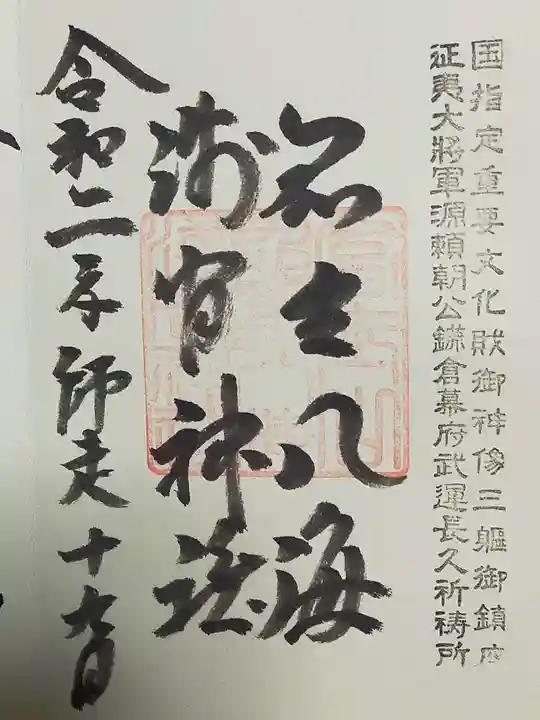 国指定重要文化財御神像三軀御鎮座
征夷大將軍源頼朝公鎌倉幕府武運長久祈祷所
冨士八海
浅間神社
令和二年師走十九日